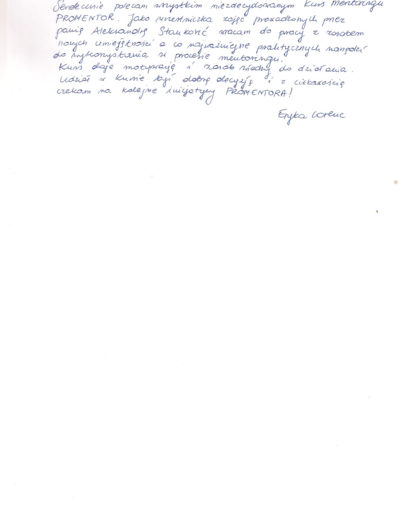 Serdecznie polecam wszystkim niezdecydowanym kurs mentoringu
PROMENTOR. Jako uczestniczka zajęć prowadzonych przez
panią Aleksandrę Stankość wracam do pracy z zasobem
nowych umiejętności a co najważniejsze praktycznych narzędzi
do wykorzystania w procesie mentoringu.
Kurs daje motywację i zasób wiedzy do działania.
Udział w kursie był dobrą decyzją i z ciekawością
czekam na kolejne inicjatywy PROMENTORA!
Eryka Lorenc